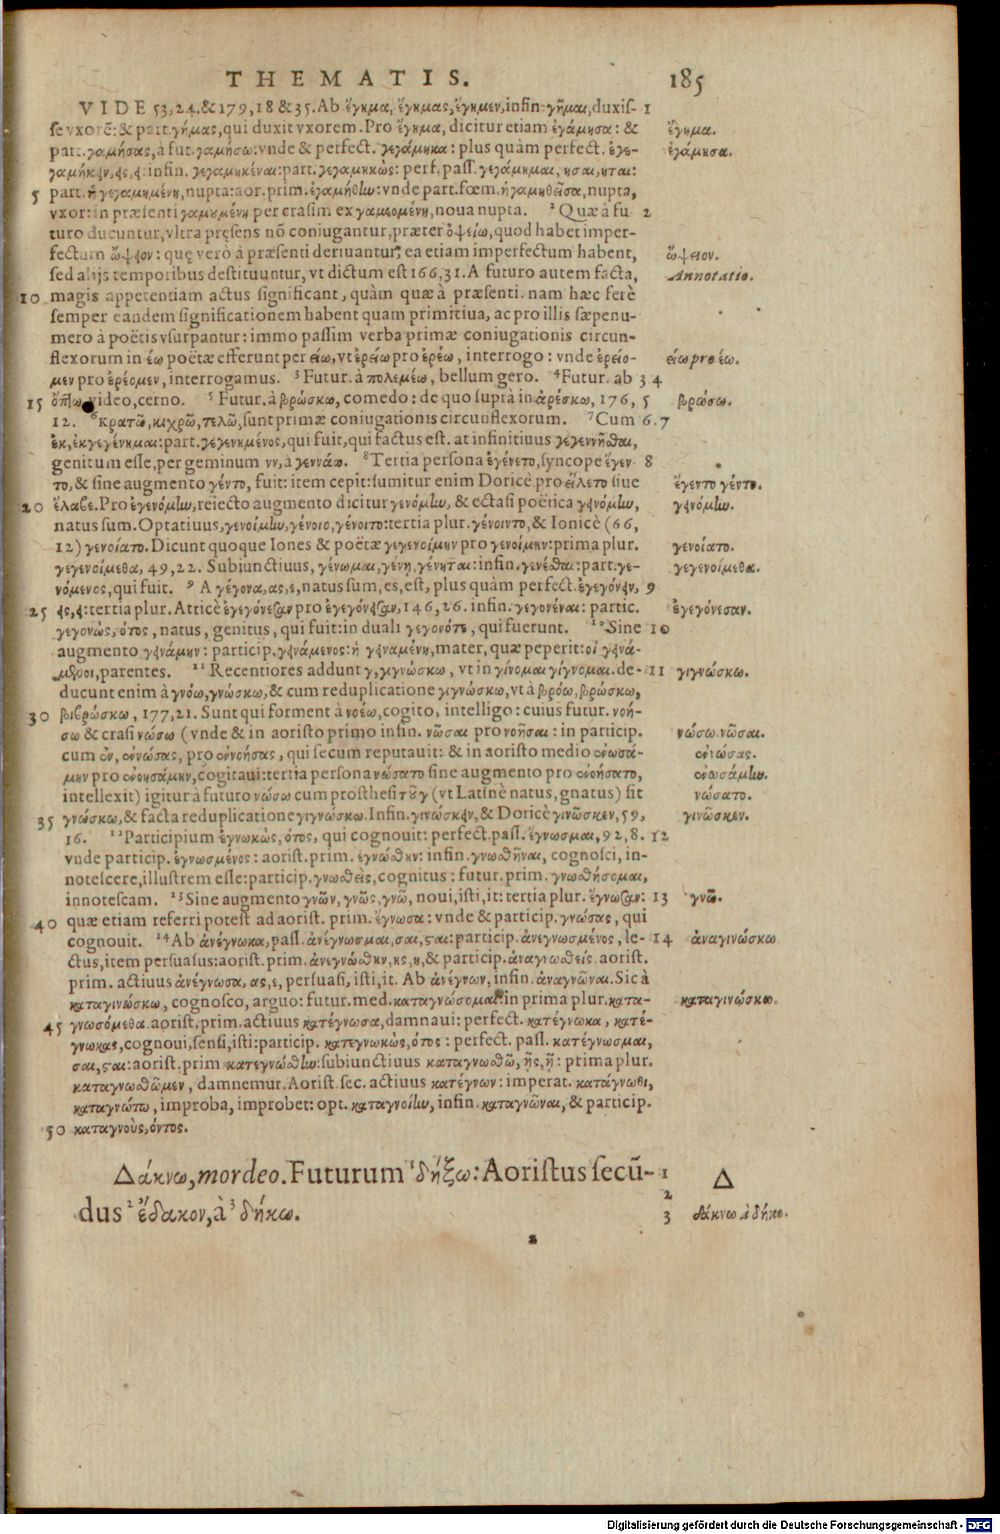 THEMATIS. 185
VIDE 53,24.&179,18&35. Ab ἔγημα, ἔγημας, ἔγημεν, infin. γῆμαι, duxis- 1
se vxorē: & part. γήμας, qui duxit vxorem. Pro ἔγημα, dicitur etiam ἐγάμησα: & ἔγημα.
part. γαμήσας, à fut. γαμήσω: vnde & perfect. γεγάμηκα: plus quàm perfect. ἐγε- ἐγάμησα.
γαμήκειν, εις, ει: infin. γεγαμηκέναι: part. γεγαμηκὼς: perf. pass. γεγάμημαι, ησαι, ηται:
5 part. ἡ γεγαμημένη, nupta: aor. prim. ἐγαμήθην: vnde part. fœm. ἡ γαμηθεῖσα, nupta,
vxor: in præsenti γαμουμένη per crasim ex γαμεομένη, noua nupta. ²Quæ à fu 2
turo ducuntur, vltra pręsens nō coniugantur, præter ὀψείω, quod habet imper-
fectum ὤψειον: quę verò à præsenti deriuantur, ea etiam imperfectum habent, ὤψειον.
sed alijs temporibus destituuntur, vt dictum est 166,31. A futuro autem facta, Annotatio.
10 magis appetentiam actus significant, quàm quæ à præsenti. nam hæc ferè
semper eandem significationem habent quam primitiua, ac pro illis sæpenu-
mero à poëtis vsurpantur: immo passim verba primæ coniugationis circun-
flexorum in έω poëtæ efferunt per είω, vt ἐρείω pro ἐρέω, interrogo: vnde ἐρείο- είω pro έω.
μεν pro ἐρέομεν, interrogamus. ³Futur. à πολεμέω, bellum gero. ⁴Futur. ab 3 4
15 ὄπτω video, cerno. ⁵Futur. à βρώσκω, comedo: de quo supra in ἀρέσκω, 176, 5 βρώσω.
12. ⁶κρατῶ, κιχρῶ, τελῶ, sunt primæ coniugationis circunflexorum. ⁷Cum 6.7
ἐκ, ἐκγεγένημαι: part. γεγενημένος, qui fuit, qui factus est. at infinitiuus γεγεννῆσθαι,
genitum esse, per geminum νν, à γεννάω. ⁸Tertia persona ἐγένετο, syncope ἔγεν 8
το, & sine augmento γέντο, fuit: item cepit: sumitur enim Doricè pro εἵλετο siue ἔγεντο γέντο.
20 ἔλαβε. Pro ἐγενόμην, reiecto augmento dicitur γενόμην, & ectasi poëtica γεινόμην, γεινόμην.
natus sum. Optatiuus, γενοίμην, γένοιο, γένοιτο: tertia plur. γένοιντο, & Ionicè (66,
12) γενοίατο. Dicunt quoque Iones & poëtæ γεγενοίμην pro γενοίμην: prima plur. γενοίατο.
γεγενοίμεθα, 49,22. Subiunctiuus, γένωμαι, γένῃ, γένηται: infin. γενέσθαι: part. γε- γεγενοίμεθα.
νόμενος, qui fuit. ⁹A γέγονα, ας, ε, natus sum, es, est, plus quàm perfect. ἐγεγόνειν, 9
25 εις, ει: tertia plur. Atticè ἐγεγόνεσαν pro ἐγεγόνεισαν, 146,26. infin. γεγονέναι: partic. ἐγεγόνεσαν.
γεγονὼς, ότος, natus, genitus, qui fuit: in duali γεγονότε, qui fuerunt. ¹⁰Sine 10
augmento γεινάμην: particip. γεινάμενος: ἡ γειναμένη, mater, quæ peperit: οἱ γεινά-
μενοι, parentes. ¹¹Recentiores addunt γ, γιγνώσκω, vt in γίνομαι γίγνομαι. de- 11 γιγνώσκω.
ducunt enim à γνόω, γνώσκω, & cum reduplicatione γιγνώσκω, vt à βρόω, βρώσκω,
30 βιβρώσκω, 177,21. Sunt qui forment à νοέω, cogito, intelligo: cuius futur. νοή-
σω & crasi νώσω (vnde & in aoristo primo infin. νῶσαι pro νοῆσαι: in particip. νώσω. νῶσαι.
cum ἐν, ἐννώσας, pro ἐννοήσας, qui secum reputauit: & in aoristo medio ἐνωσά- ἐννώσας.
μην pro ἐνοησάμην, cogitaui: tertia persona νώσατο sine augmento pro ἐνοήσατο, ἐνωσάμην.
intellexit) igitur à futuro νώσω cum prosthesi τοῦ γ (vt Latinè natus, gnatus) fit νώσατο.
35 γνώσκω, & facta reduplicatione γιγνώσκω. Infin. γινώσκειν, & Doricè γινῶσκεν, 59, γινῶσκεν.
16. ¹²Participium ἐγνωκὼς, ότος, qui cognouit: perfect. pass. ἔγνωσμαι, 92,8. 12
vnde particip. ἐγνωσμένος: aorist. prim. ἐγνώσθην: infin. γνωσθῆναι, cognosci, in-
notescere, illustrem esse: particip. γνωσθεὶς, cognitus: futur. prim. γνωσθήσομαι,
innotescam. ¹³Sine augmento γνῶν, γνῶς, γνῶ, noui, isti, it: tertia plur. ἔγνωσαν: 13 γνῶ.
40 quæ etiam referri potest ad aorist. prim. ἔγνωσα: vnde & particip. γνώσας, qui
cognouit. ¹⁴Ab ἀνέγνωκα, pass. ἀνέγνωσμαι, σαι, σται: particip. ἀνεγνωσμένος, le- 14 ἀναγινώσκω
ctus, item persuasus: aorist. prim. ἀνεγνώσθην, ης, η, & particip. ἀναγνωσθείς. aorist.
prim. actiuus ἀνέγνωσα, ας, ε, persuasi, isti, it. Ab ἀνέγνων, infin. ἀναγνῶναι. Sic à
καταγινώσκω, cognosco, arguo: futur. med. καταγνώσομαι: in prima plur. κατα- καταγινώσκω.
45 γνωσόμεθα. aorist. prim. actiuus κατέγνωσα, damnaui: perfect. κατέγνωκα, κατέ-
γνωκας, cognoui, sensi, isti: particip. κατεγνωκὼς, ότος: perfect. pass. κατέγνωσμαι,
σαι, σται: aorist. prim κατεγνώσθην: subiunctiuus καταγνωσθῶ, ῇς, ῇ: prima plur.
καταγνωσθῶμεν, damnemur. Aorist. sec. actiuus κατέγνων: imperat. κατάγνωθι,
καταγνώτω, improba, improbet: opt. καταγνοίην, infin. καταγνῶναι, & particip.
50 καταγνοὺς, όντος.
Δάκνω, mordeo. Futurum ¹δήξω: Aoristus secū- 1 Δ
2
dus ²ἔδακον, à ³δήκω. 3 δάκνω à δήκω.
Digitalisierung gefördert durch die Deutsche Forschungsgemeinschaft - DFG